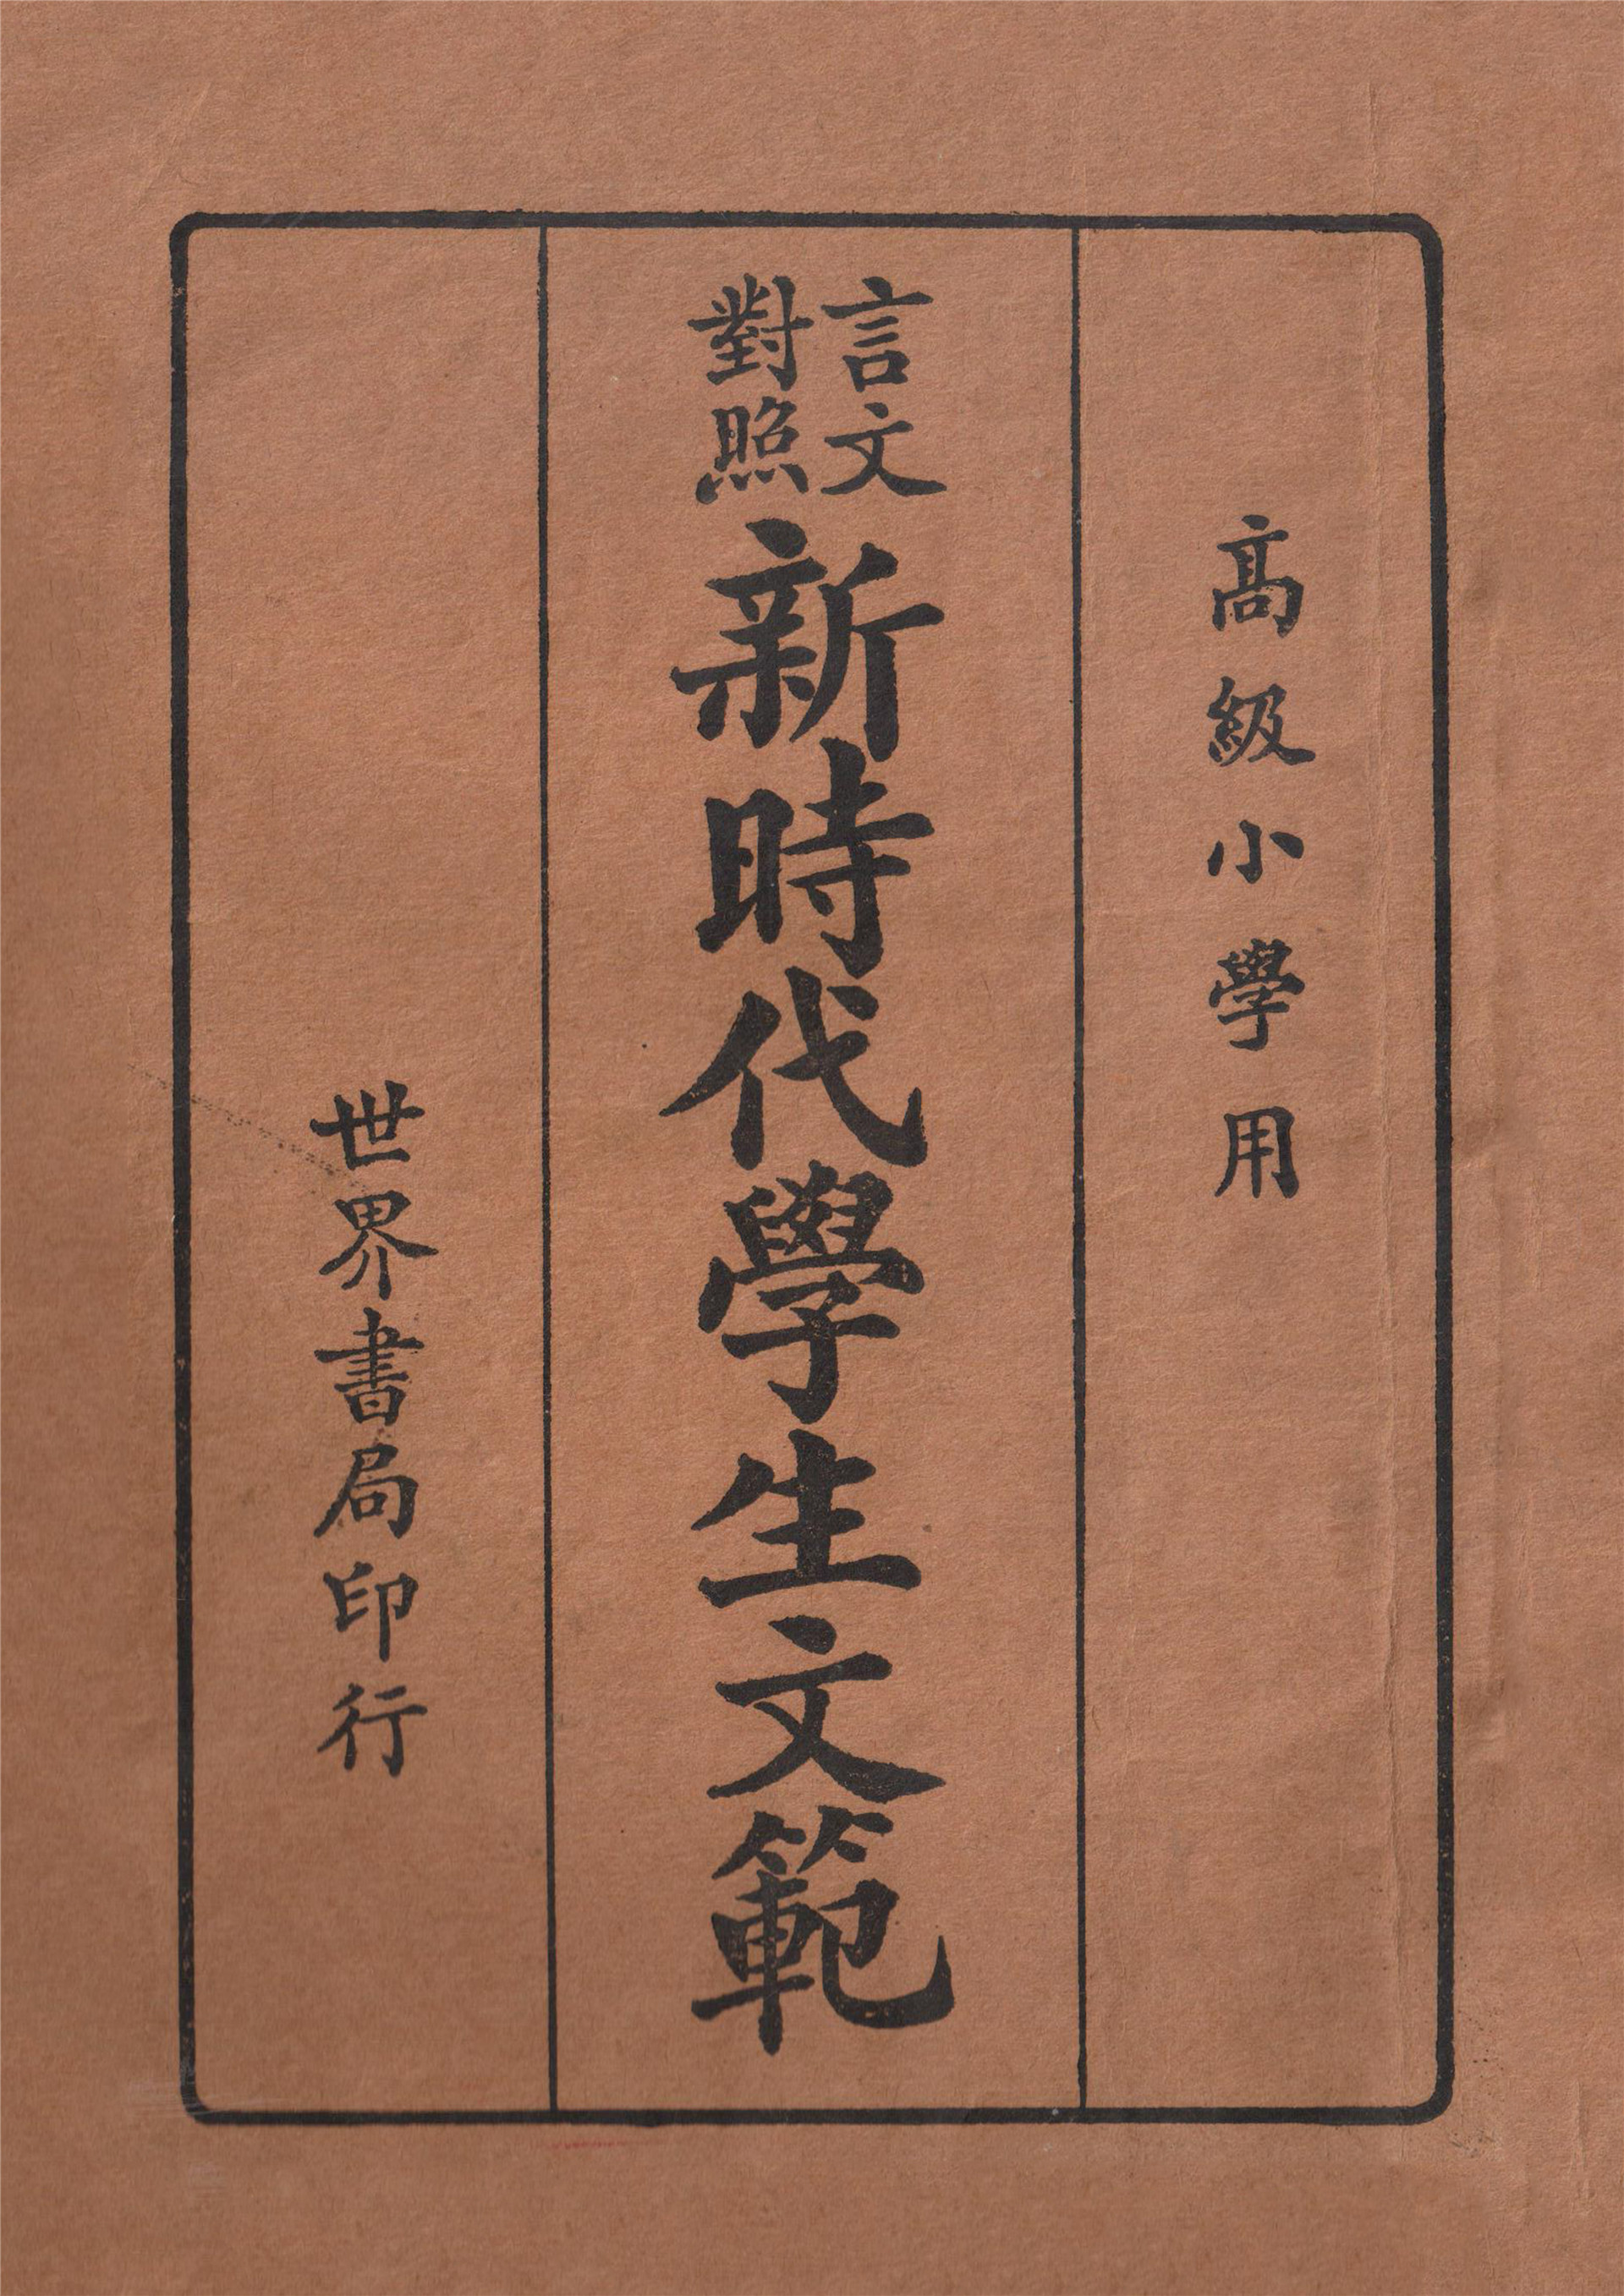 高級小學用
言文
對照
新時代學生文範
世界書局印行